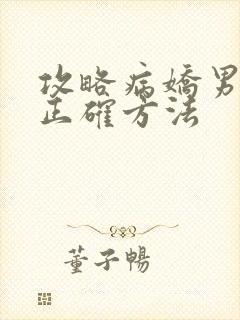 攻略病嬌男
正確方法
董子暢